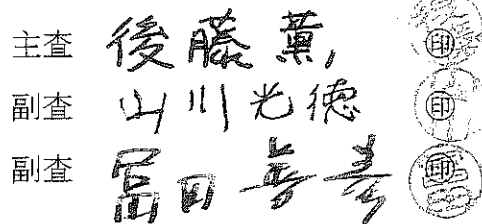 主査 後藤 薫 ㊞
副査 山川光徳 ㊞
副査 冨田善 ㊞